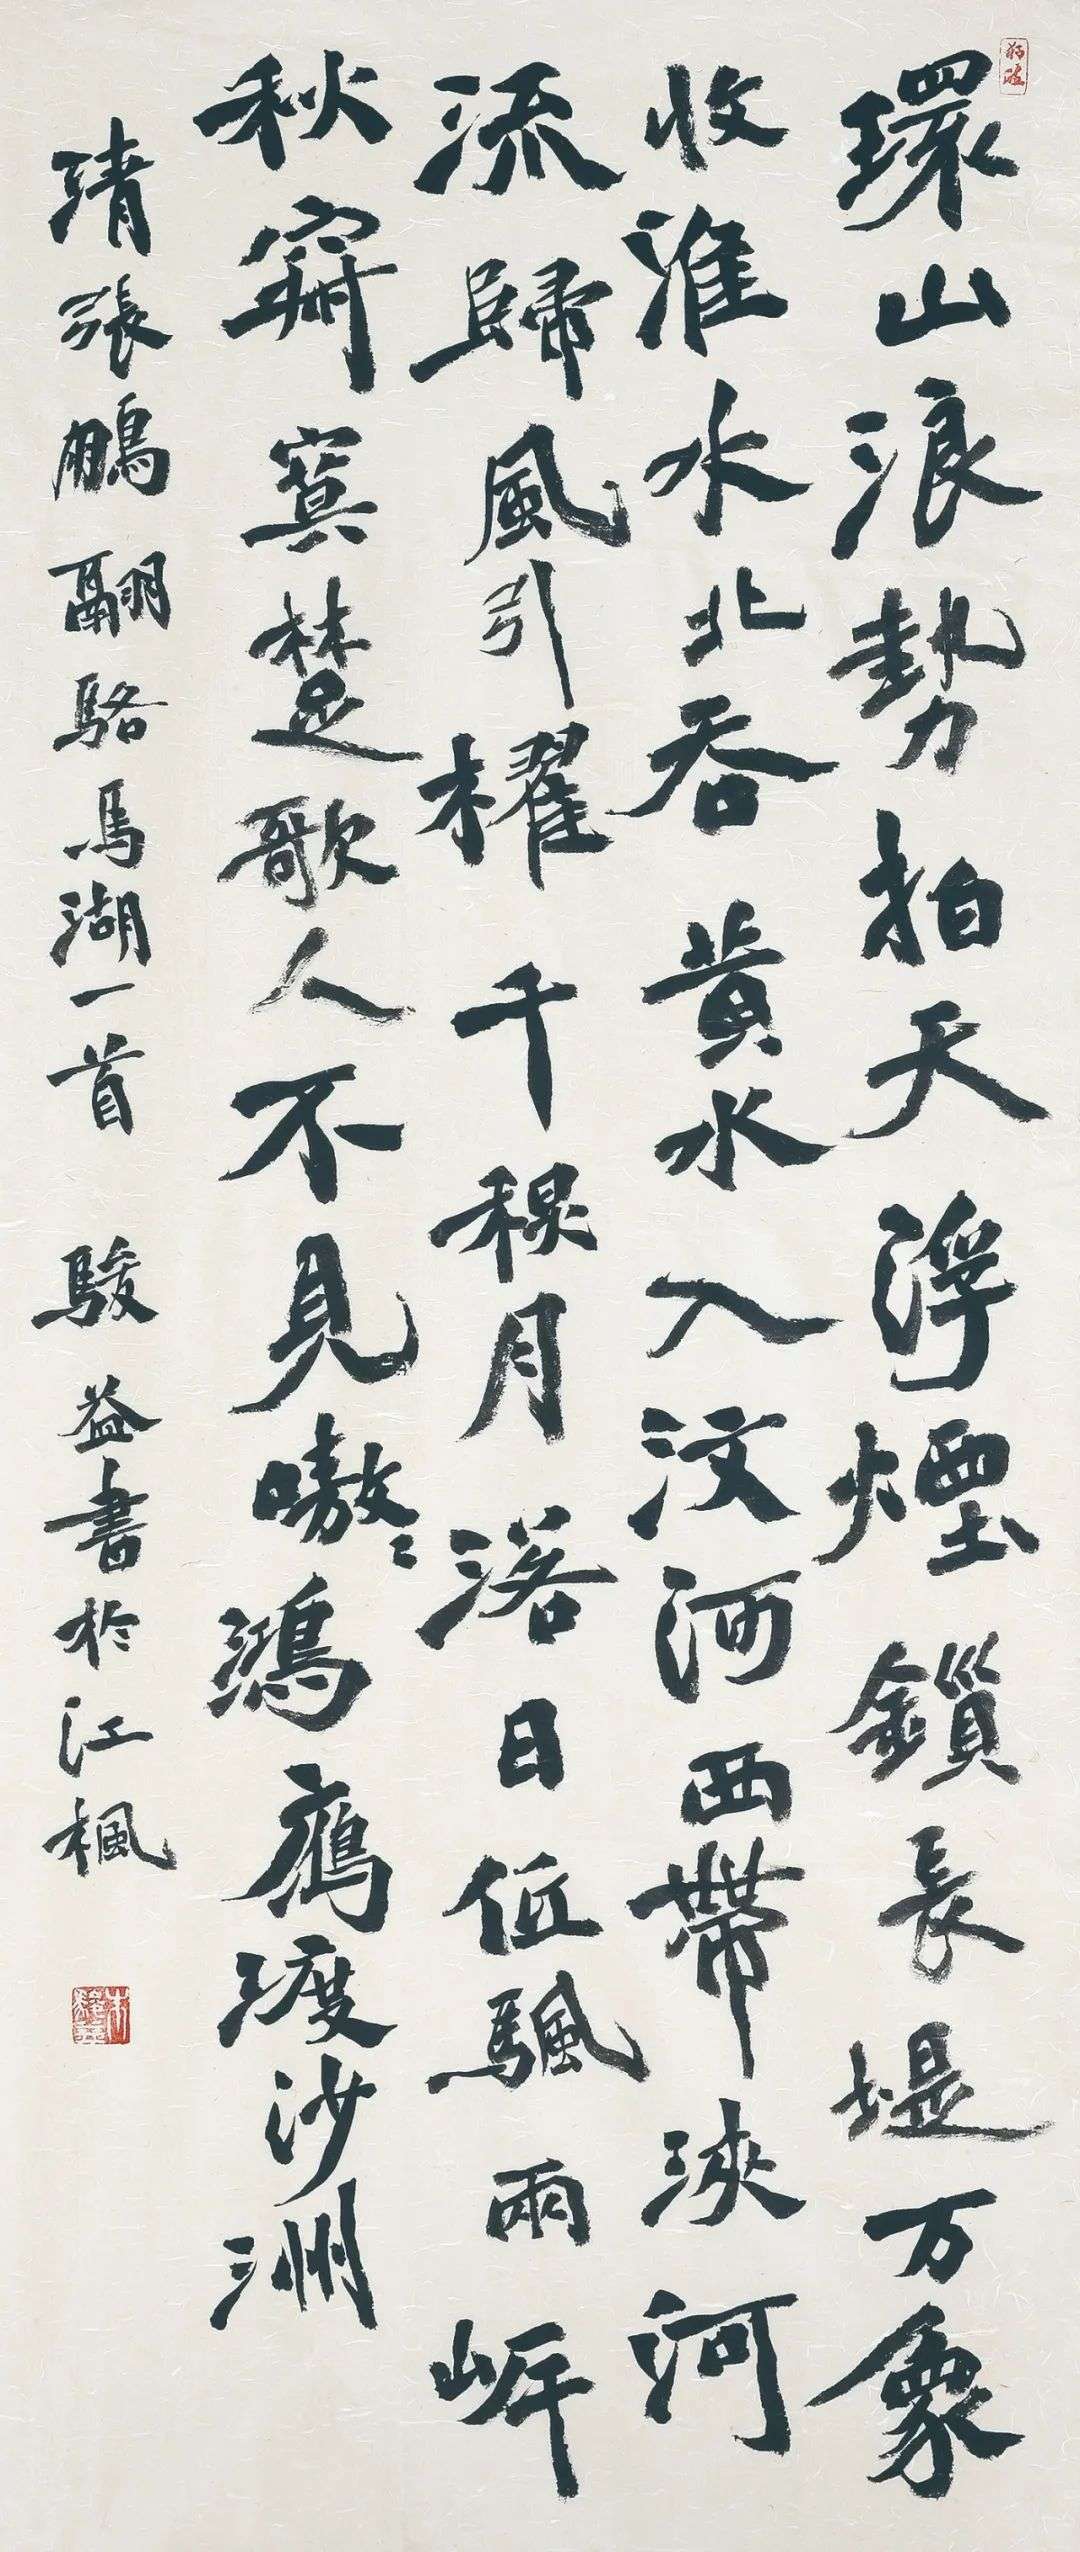 環山浪勢拍天浮煙鎖長堤万象
收淮水北吞黃水入汶河西帶浹河
流歸風引櫂千穆月落日低颿雨岸
秋窮寞楚歌人不見嗷〻鴻鴈渡沙洲
清張鵬翮駱馬湖一首 駿益書於江楓